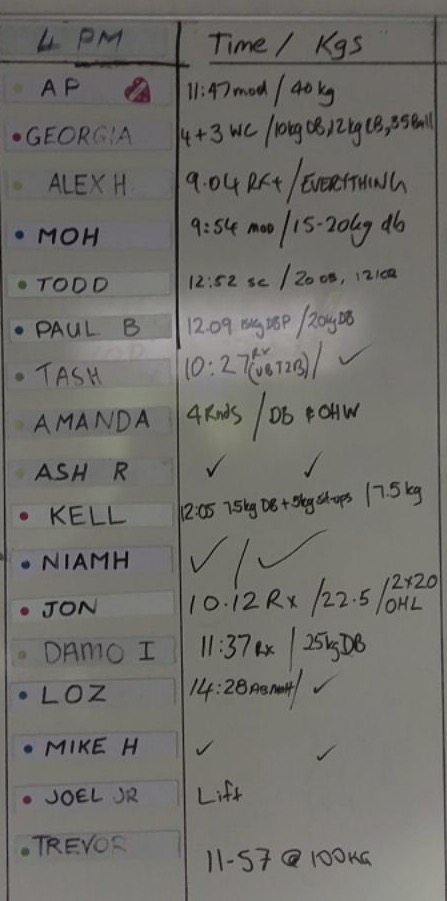 4 PM Time / Kgs
AP 11:47 mod / 40kg
GEORGIA 4+3 WC / 10kg DB, 12kg CB, 35Ball
ALEX H 9.04 RX+ / EVERYTHING
MOH 9:54 mod / 15-20kg db
TODD 12:52 sc / 20 DB,
PAUL B 12.09 15kg DBP / 20kg DB
TASH 10:27 RX / ✓
AMANDA 4 Rnds / DB & OHW
ASH R ✓ ✓
KELL 12:05 7.5kg DB + 5kg sit-ups / 7.5kg
NIAMH ✓ / ✓
JON 10.12 Rx / 22.5 / 2x20 OHL
DAMO I 11:37 Rx / 25kg DB
LOZ 14:28 / ✓
MIKE H ✓ ✓
JOEL JR Lift
TREVOR 11-57 @ 100KG